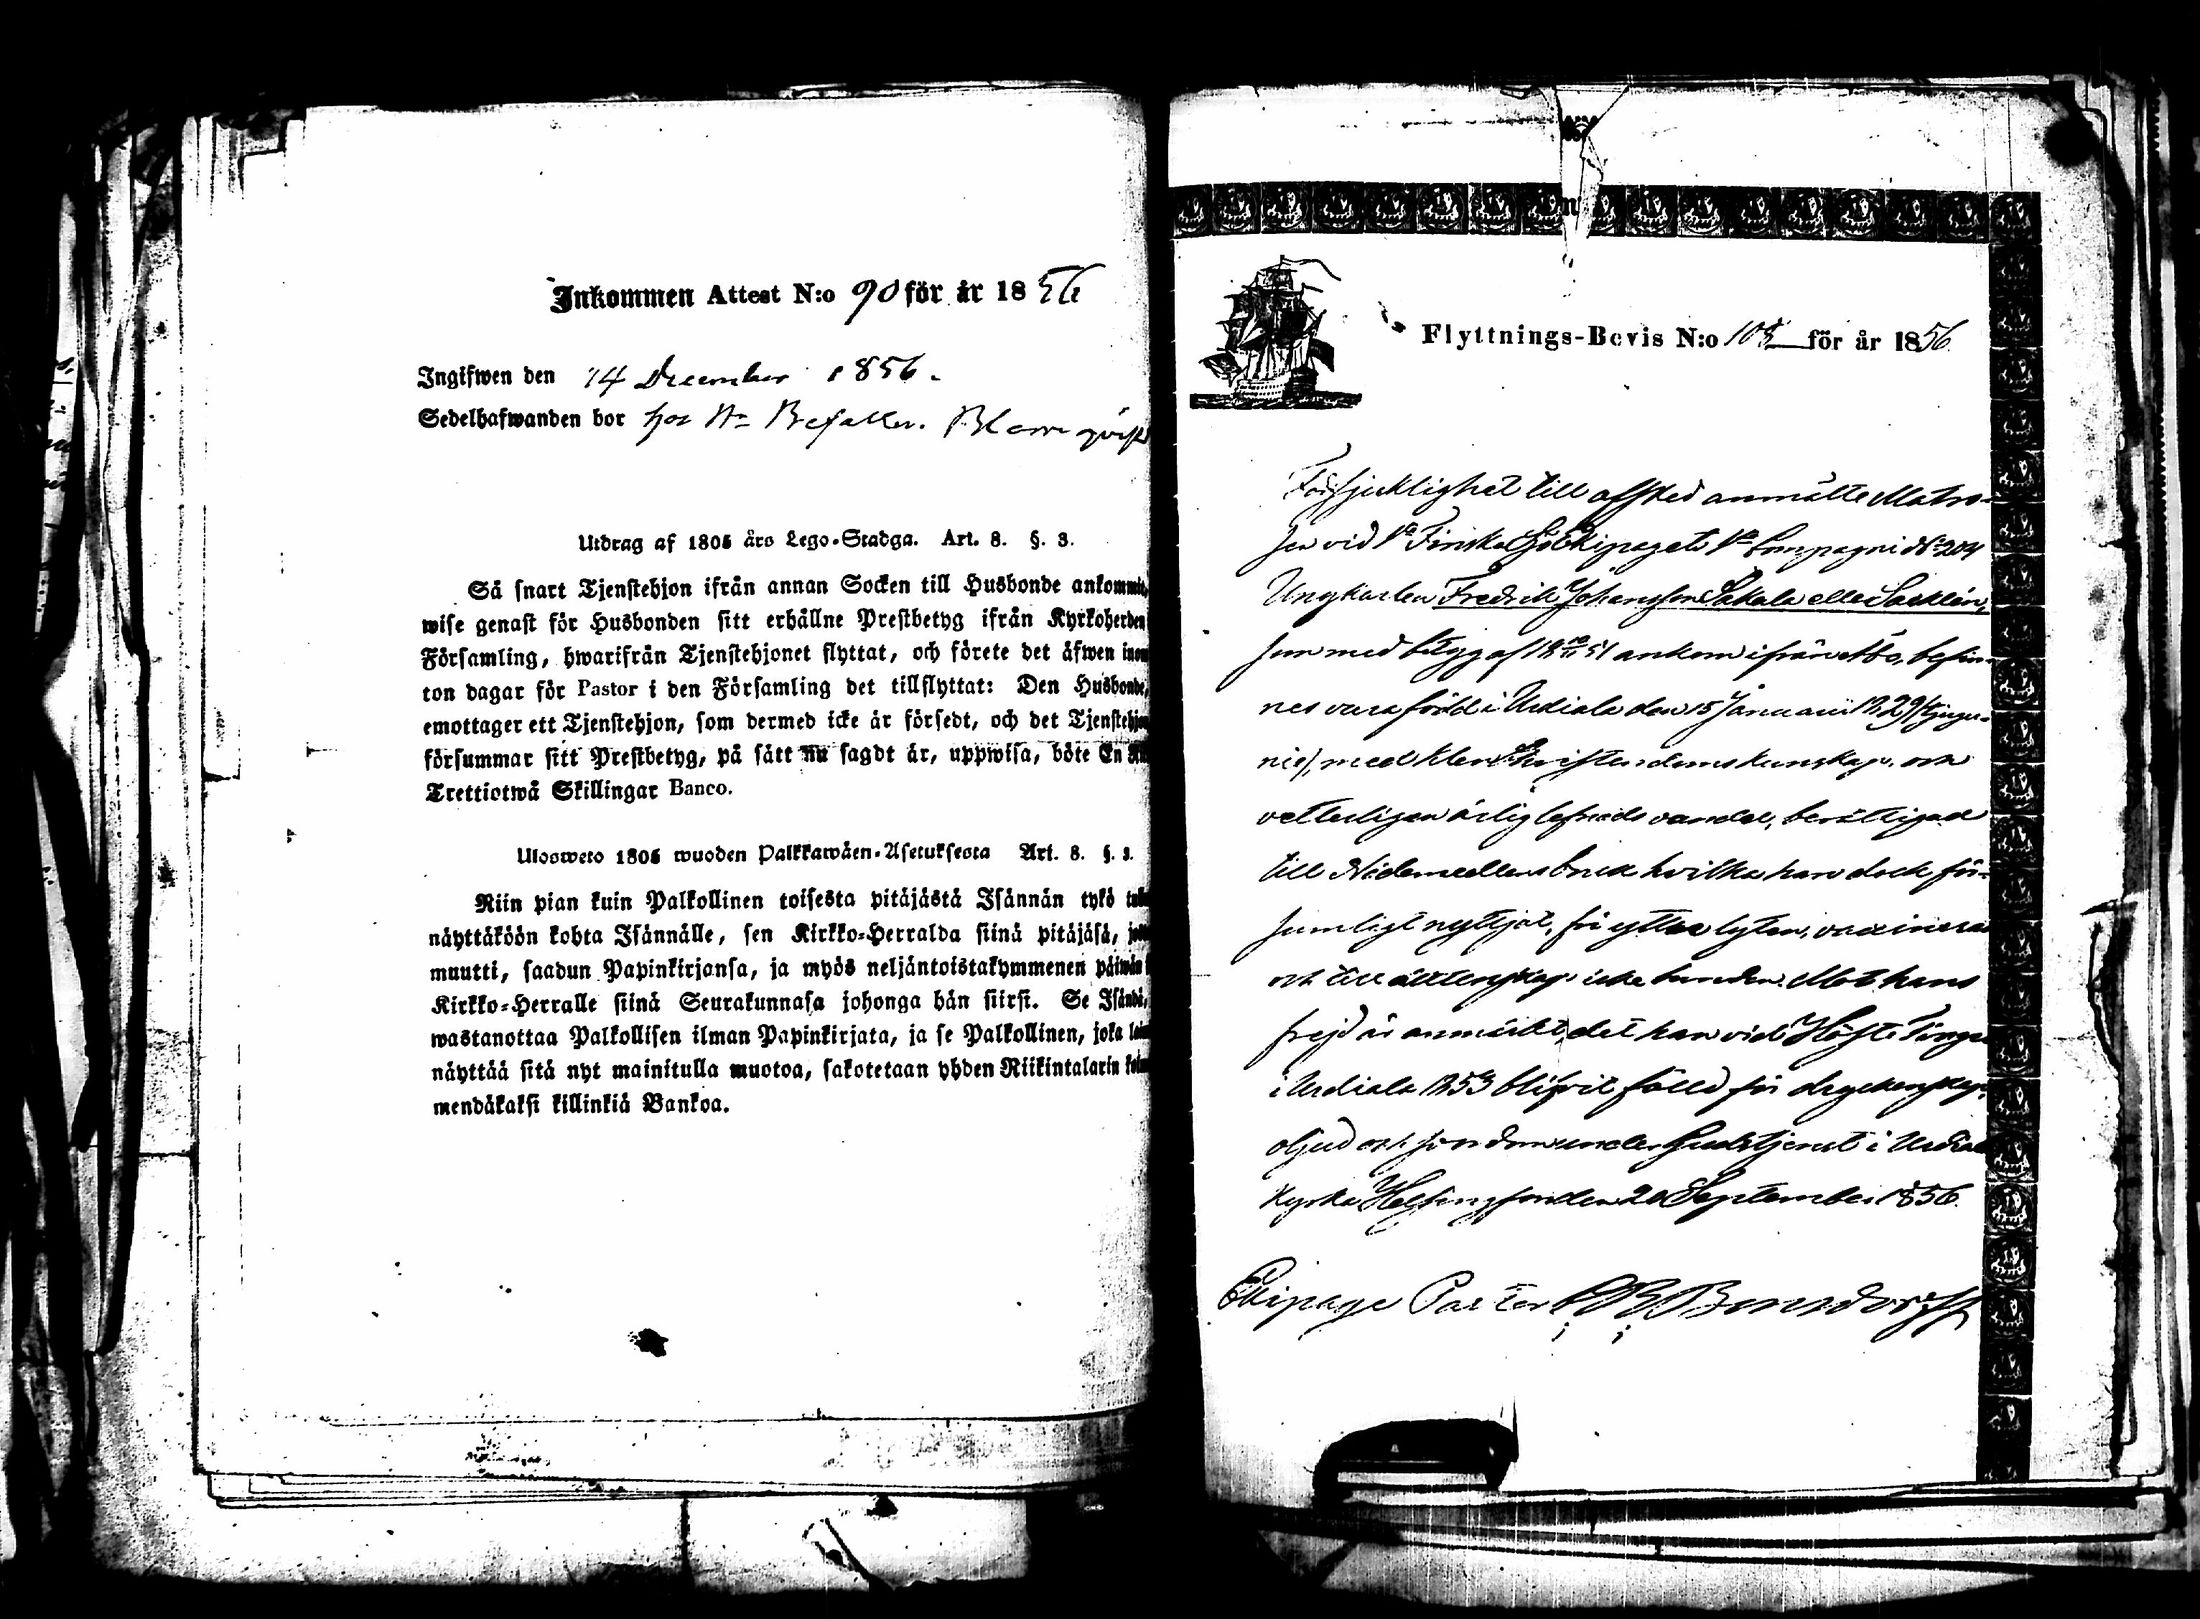 Inkommen Attest N:o 90 för år 1856
Ingifwen den 14 December 1856.
Sedelhafwanden bor hos Hr Befallen. Blomqvist
Utdrag af 1805 års Lego-Stadga. Art. 8. §. 3.
Så snart Tjenstehjon ifrån annan Socken till Husbonde ankommit,
wise genast för Husbonden sitt erhållne Prestbetyg ifrån Kyrkoherden
Församling, hwarifrån Tjenstehjonet flyttat, och förete det äfwen inom
ton dagar för Pastor i den Församling det tillflyttat: Den Husbonde,
emottager ett Tjenstehjon, som dermed icke är försedt, och det Tjenstehjon
försummar sitt Prestbetyg, på sätt nu sagdt är, uppwisa, böte En
Trettiotwå Skillingar Banco.
Ulosweto 1805 wuoden Palkkawäen-Asetuksesta Art. 8. §. 3.
Niin pian kuin Palkollinen toisesta pitäjästä Isännän tykö
näyttäköön kohta Isännälle, sen Kirkko-Herralda siinä pitäjäsä,
muutti, saadun Papinkirjansa, ja myös neljäntoistakymmenen päiwän
Kirkko-Herralle siinä Seurakunnasa johonga hän siirsi. Se Isändä,
wastanottaa Palkollisen ilman Papinkirjata, ja se Palkollinen, joka
näyttää sitä nyt mainitulla muotoa, sakotetaan yhden Riikintalarin
mendäkaksi killinkiä Bankoa.
Flyttnings-Bevis N:o för år 1856
För sjuklighet till afsked anmälte Matro-
sen vid 1a Finska SjöEkipagets 1a Compagni No 204
Ungkarlen Fredrik Johansson Sakala eller Saklén,
som med betyg af 18 51 ankom ifrån Åbo, befin-
nes vara född i Urdiala den 15 Januari 1829
med klen Christendomskunskap och
vetterligen ärlig lefnads vandel, berättigad
till Nådemedlens bruk hvilka han dock för-
sumligt nyttjat, fri yttre lyten, vaccinerad
och till äktenskap icke bunden. Mot hans
frejd är anmärkt, det han vid Höste Tinget
i Urdiala 1853 blifvit fälld för dryckenskap,
oljud och under Gudstjenst i Urdiala
Kyrka. Helsingfors den 20 September 1856.
Ekipage Pastor Bonsdorff